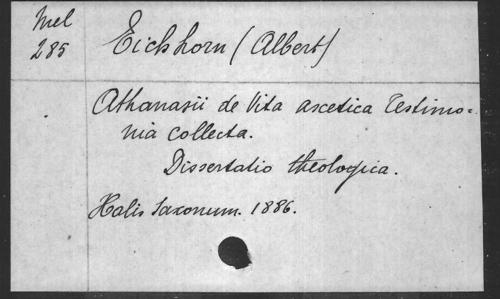 Mel
285
Eichhorn (Albert)
Athanasii de Vita ascetica Testimo=
nia collecta.
Dissertatio theologica.
Halis Saxonum. 1886.